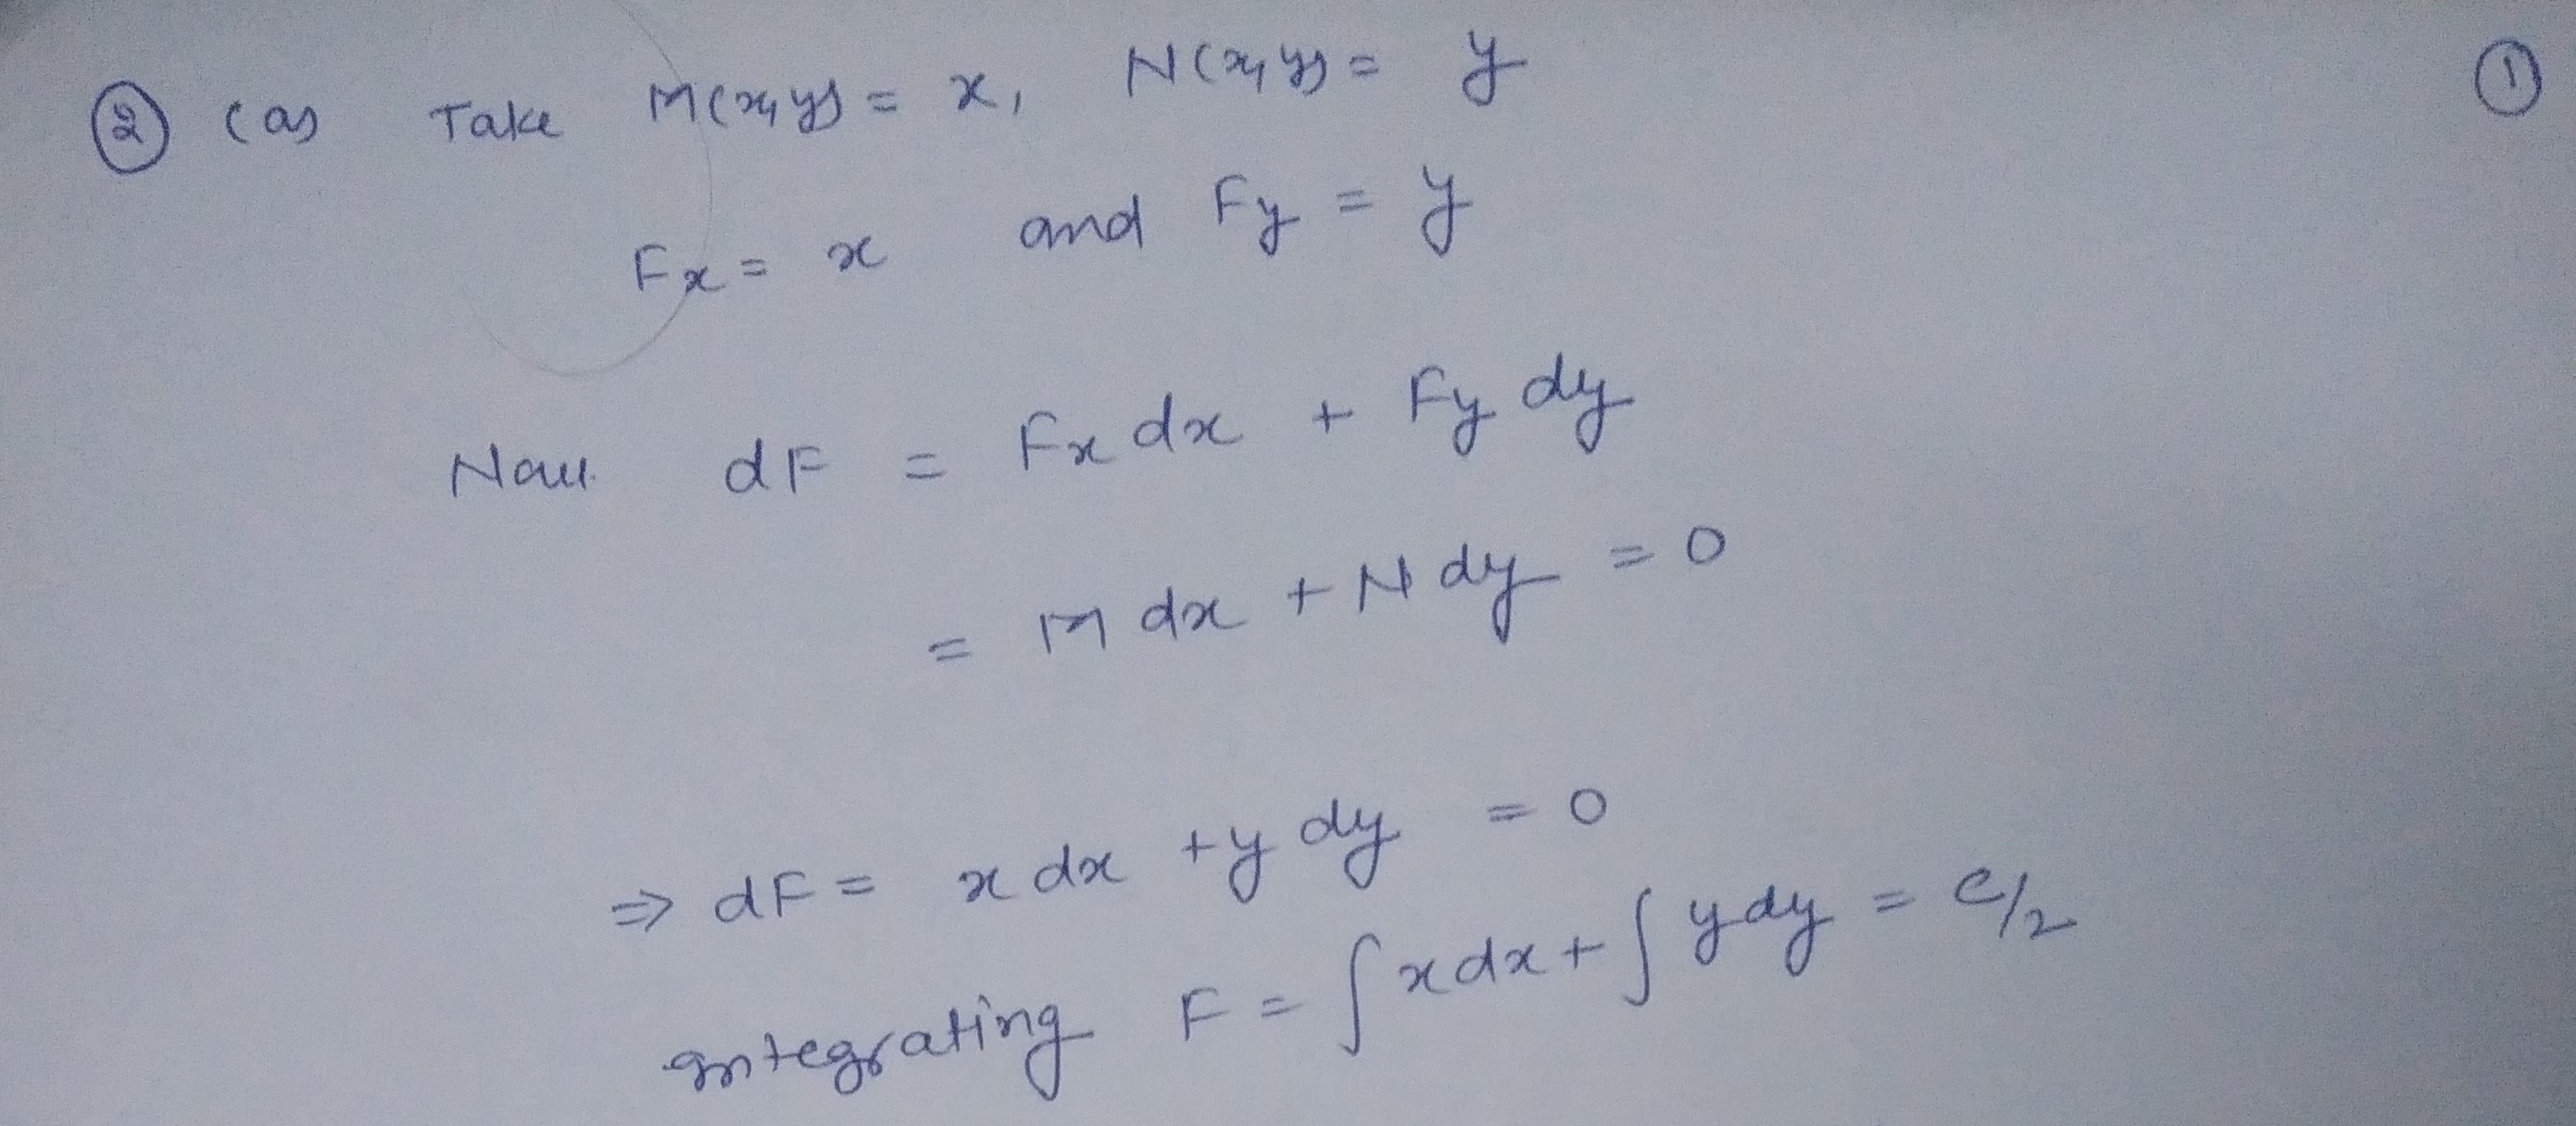 ② (a) Take M(x,y) = x, N(x,y) = y ①
Fx = x and Fy = y
Now dF = Fx dx + Fy dy
= M dx + N dy = 0
⇒ dF = x dx + y dy = 0
Integrating F = ∫ x dx + ∫ y dy = c/2